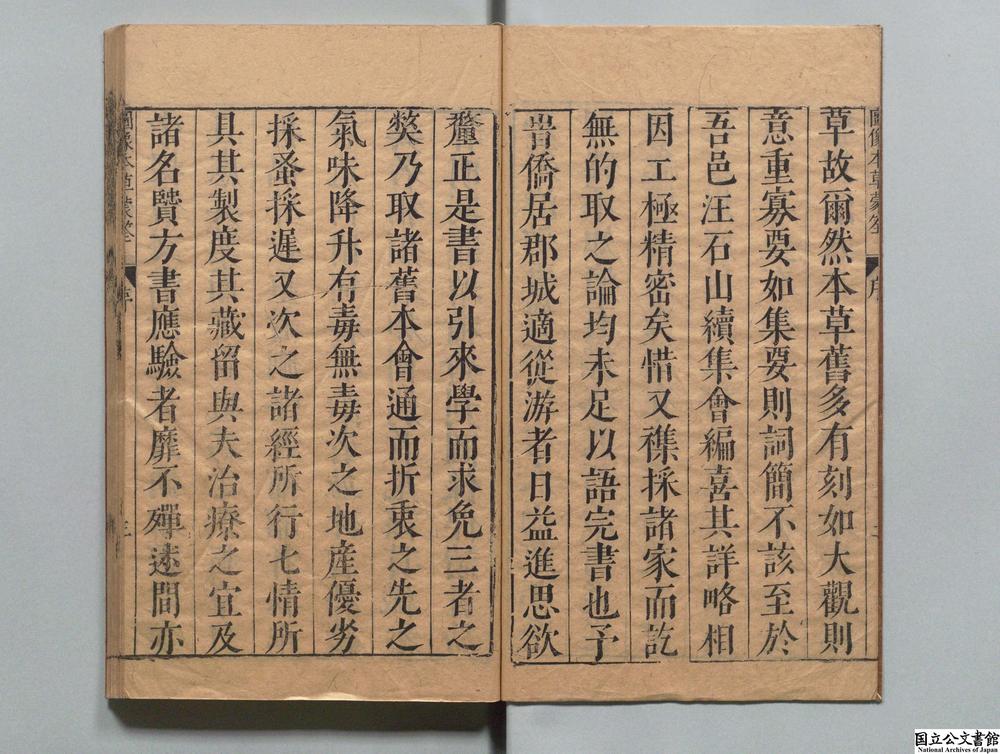 圖像本草蒙筌 序
草故爾然本草舊多有刻如大觀則
意重寡要如集要則詞簡不該至於
吾邑汪石山續集會編喜其詳略相
因工極精密矣惜又襍採諸家而訖
無的取之論均未足以語完書也予
昔僑居郡城適從游者日益進思欲
釐正是書以引來學而求免三者之
獘乃取諸舊本會通而折衷之先之
氣味降升有毒無毒次之地産優劣
採蚤採遲又次之諸經所行七情所
具其製度其藏留與夫治療之宜及
諸名賢方書應驗者靡不殫述間亦
圖像本草蒙筌 序 三
国立公文書館
National Archives of Japan